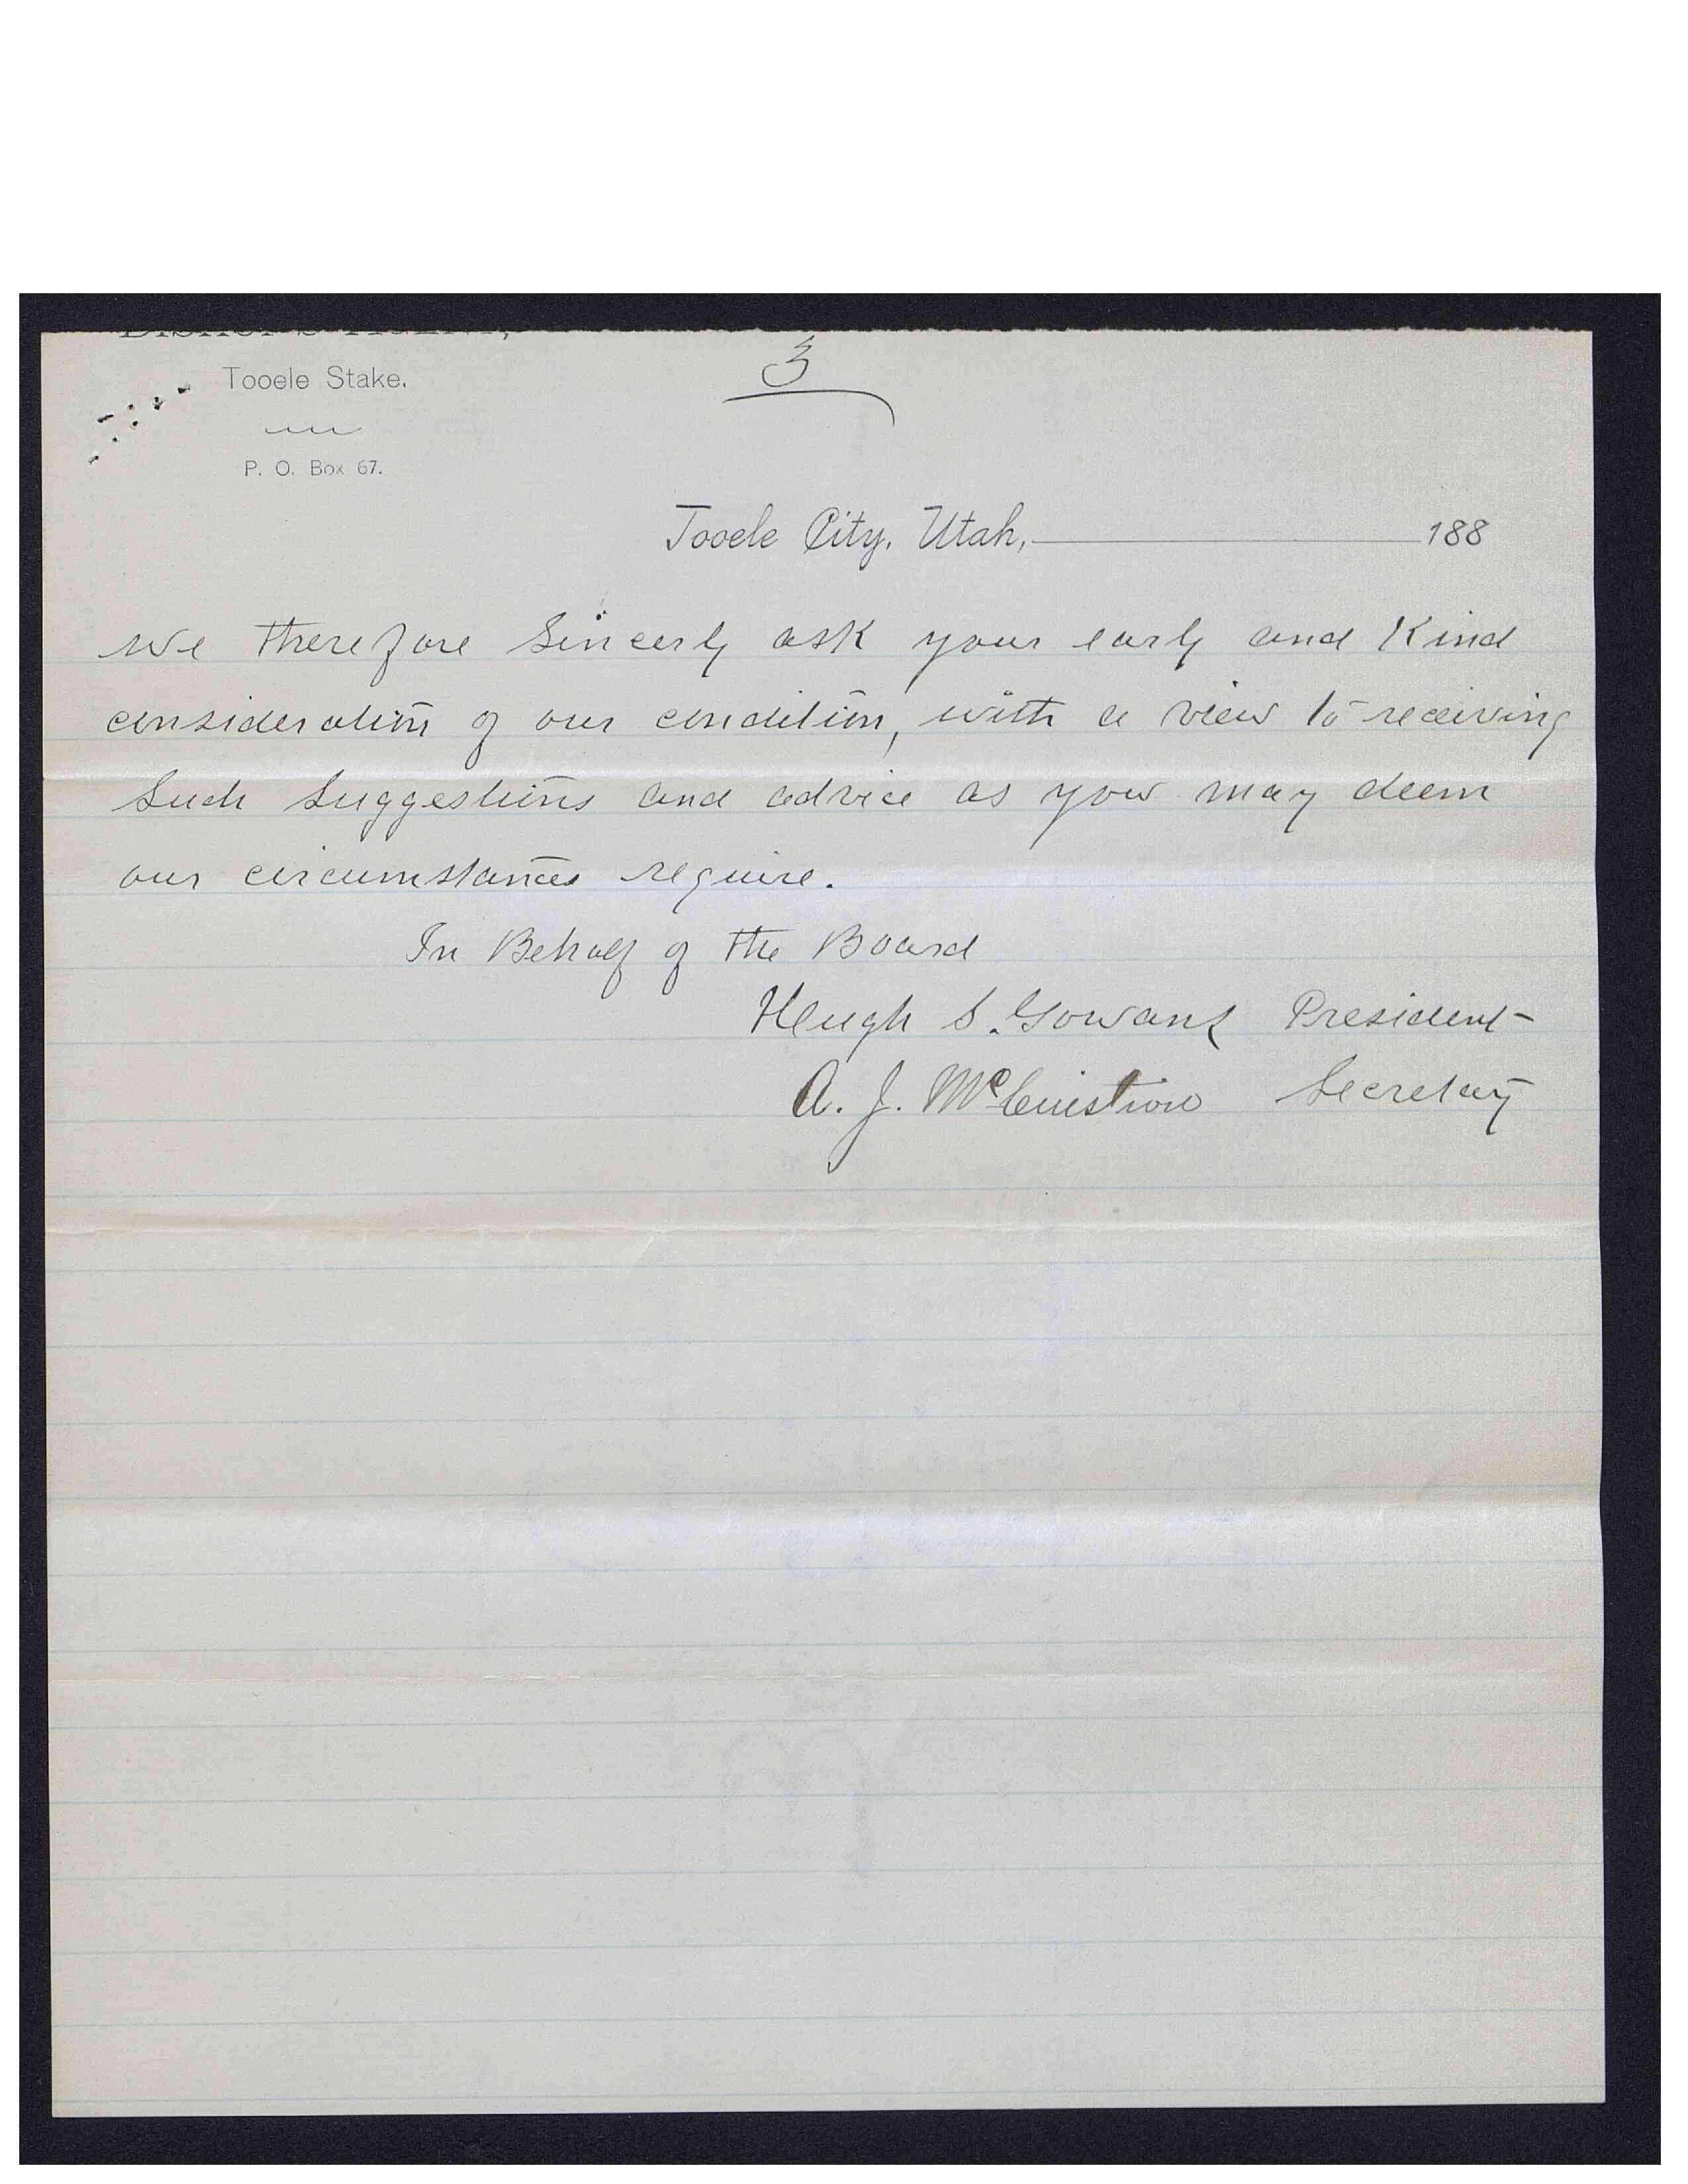 3
Tooele Stake.
P. O. Box 67.
Tooele City, Utah, 188
We therefore Sincerly ask your early and Kind
consideration of our condition, with a view to receiving
Such Suggestions and advice as you may deem
our circumstances require.
In Behalf of the Board
Hugh S. Gowans President
A. J. McCuistion Secretary